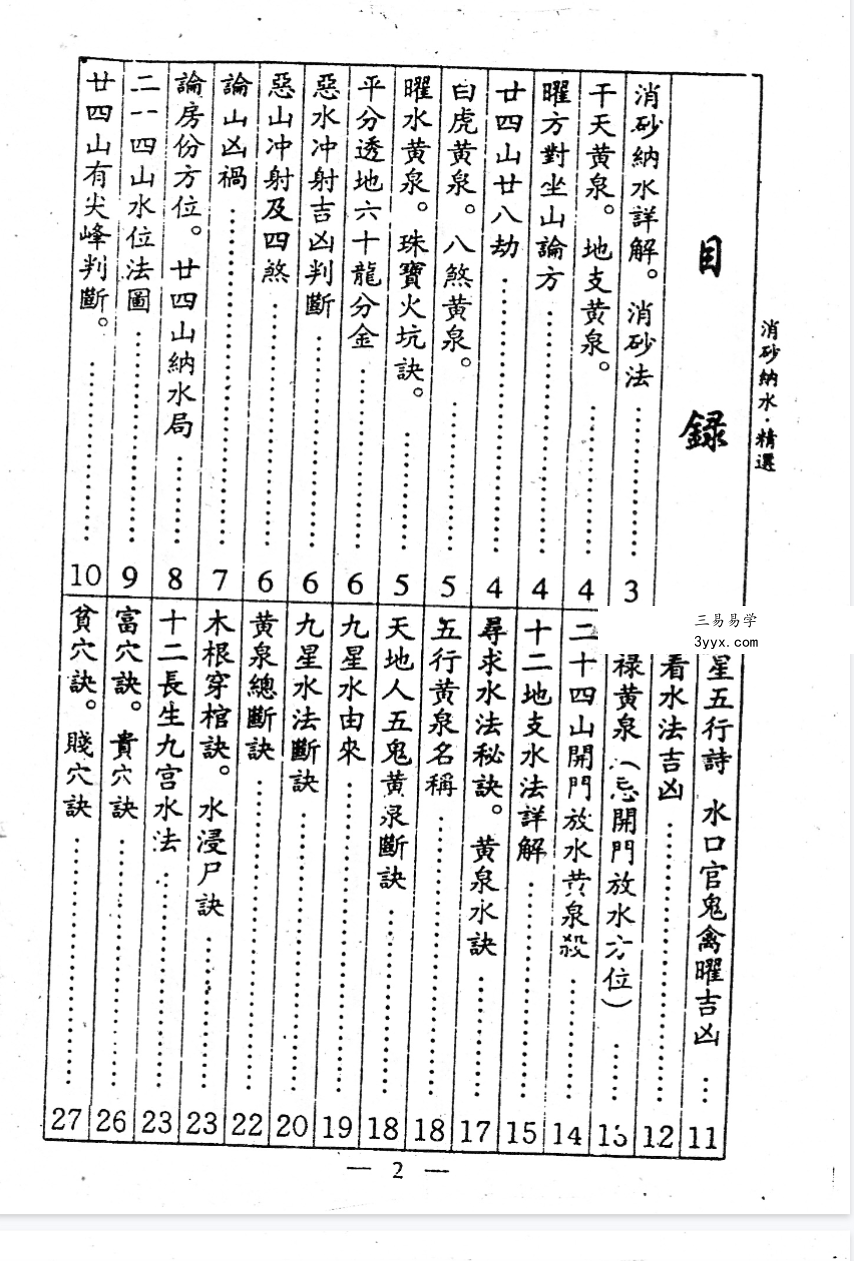 消砂納水·精選
目録
消砂納水詳解。消砂法……………3
干天黄泉。地支黄泉。……………4
曜方對坐山論方……………4
廿四山廿八劫……………4
白虎黄泉。八煞黄泉。……………5
曜水黄泉。珠寶火坑訣。……………5
平分透地六十龍分金……………6
惡水冲射吉凶判斷……………6
惡山冲射及四煞……………6
論山凶禍……………7
論房份方位。廿四山納水局……………8
二一四山水位法圖……………9
廿四山有尖峰判斷。……………10
三易易学
3yyx.com
星五行詩 水口官鬼禽曜吉凶…11
看水法吉凶……………12
禄黄泉(忌開門放水方位)……13
二十四山開門放水黄泉殺……………14
十二地支水法詳解……………15
尋求水法秘訣。黄泉水訣……………17
五行黄泉名稱……………18
天地人五鬼黄泉斷訣……………18
九星水由來……………19
九星水法斷訣……………20
黄泉總斷訣……………22
木根穿棺訣。水浸尸訣……………23
十二長生九宫水法……………23
富穴訣。貴穴訣……………26
貧穴訣。賤穴訣……………27
— 2 —